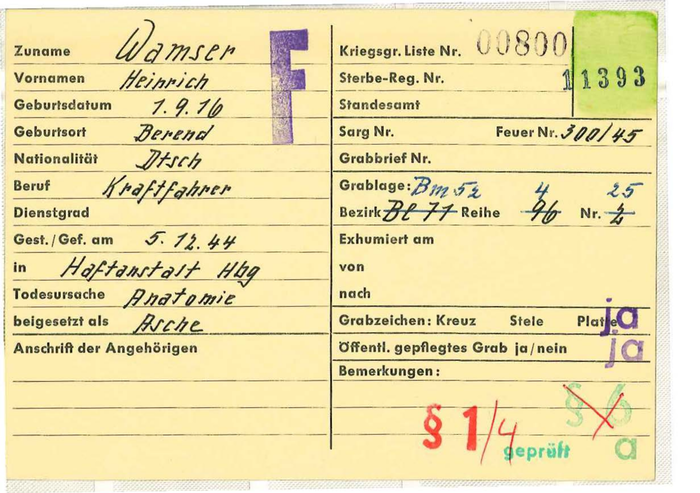 Zuname Wamser
Vornamen Heinrich
Geburtsdatum 1.9.16
Geburtsort Berend
Nationalität Dtsch
Beruf Kraftfahrer
Dienstgrad
Gest./Gef. am 5.12.44
in Haftanstalt Hbg
Todesursache Anatomie
beigesetzt als Asche
Anschrift der Angehörigen
F
Kriegsgr. Liste Nr. 00800
Sterbe-Reg. Nr. 11393
Standesamt
Sarg Nr. Feuer Nr. 300/45
Grabbrief Nr.
Grablage: Bm 52 4 25
Bezirk Bl 71 Reihe 96 Nr. 2
Exhumiert am
von
nach
Grabzeichen: Kreuz Stele Platte ja
Öffentl. gepflegtes Grab ja/nein ja
Bemerkungen:
§ 6
§ 1/4
geprüft a